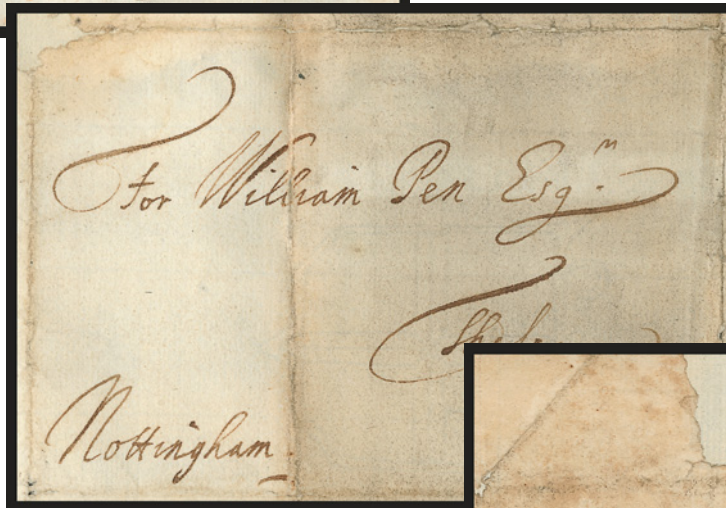 For William Pen Esq.
Nottingham